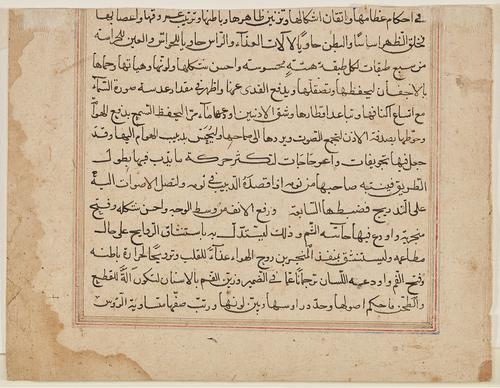 في احكام عظامها واتقان اشكالها وتزيين ظاهرها وباطنها وترتيب عروقها واعصابها
فخلق الظهر اساسا والبطن حاويا لآلات الغذاء والراس حاويا للحواس والعين للحراسة
من سبع طبقات لكل طبقة هيئة مخصوصة واحسن شكلها ولونها وهياتها وحماها
بالاجفان ليحفظها وتصقلها ويدفع القذى عنها واظهر في مقدار عدسة صورة السماء
مع اتساع اكنافها وتباعد اقطارها وشق الاذنين وعمهما ماء مرا ليحفظ السمع يدفع الهوام
وحوطها بصدفة الاذن لتجمع الصوت ويردها الى صماخها وليحس بدبيب الهوام اليها وقد
جعل فيها تجويفات واعوجاجات لتكثر حركة ما يدب فيها يطول
الطريق فينتبه صاحبها من نومه اذا قصده الدبيب في نومه وليصل الاصوات اليه
على التدريج فضبطها السامعة ورفع الانف وسط الوجه واحسن شكله وفتح
منخريه واودع فيها حاسة الشم وذلك ليستدل به باستنشاق الروايح على حال
مطاعمه وليستنشق بمنفذ المنخرين روح الهواء غذاء للقلب وترويحا لحرارة باطنه
وفتح الفم واودعه اللسان ترجمانا عما في الضمير وزين الفم بالاسنان لتكون آلة للقطع
والطحن فاحكم اصولها وحدد رؤسها وبين لونها ورتب صفها متساوية الرؤس